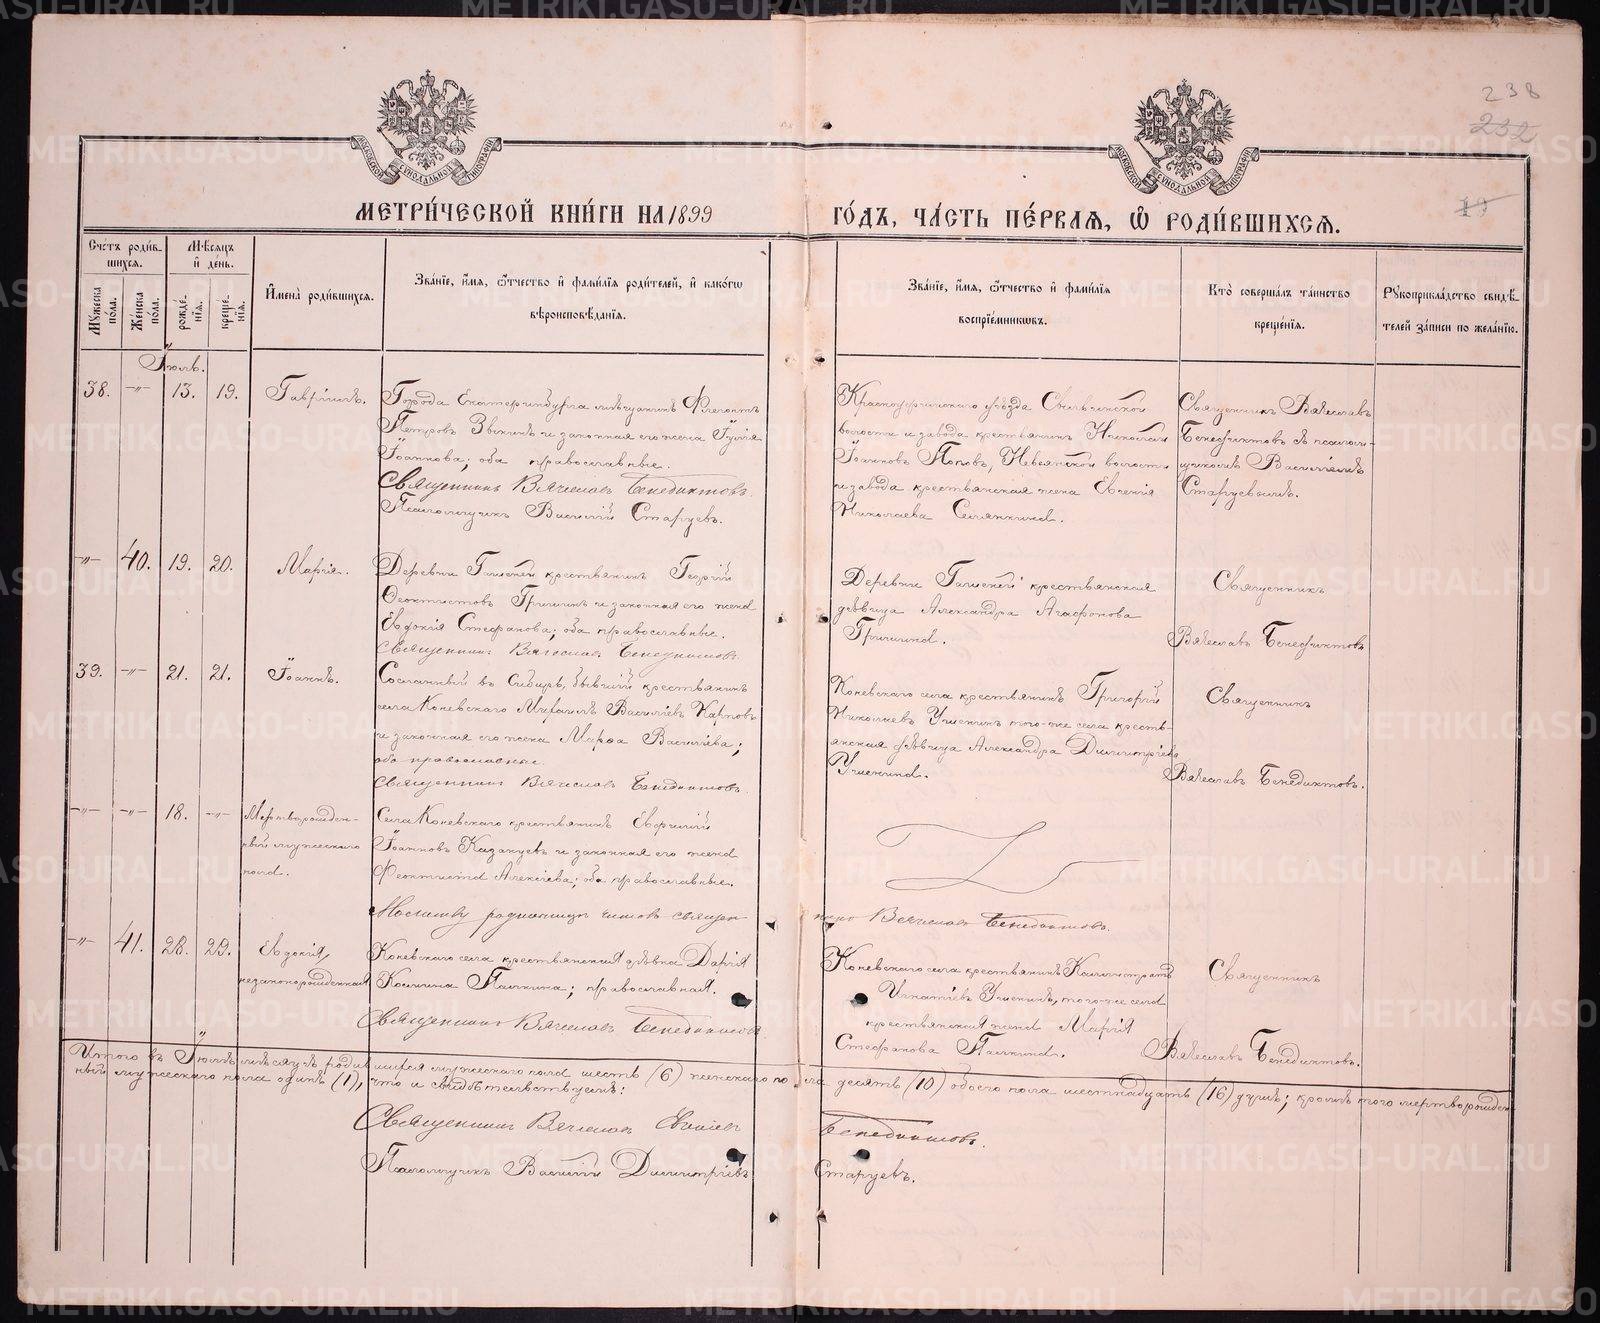 238
232
19
МЕТРИ́ЧЕСКОЙ КНИ́ГИ НА 1899 ГО́ДЪ, ЧА́СТЬ ПЕ́РВАЯ, Ѡ РОДИ́ВШИХСЯ.
Сче́тъ роди́вшихся.
Му́жеска по́ла.
Же́нска по́ла.
Мѣ́сяцъ и де́нь.
рожде́нїя.
креще́нїя.
И҆мена̀ роди́вшихся.
Зва́нїе, и҆́мя, ѻ҆́тчество и҆ фами́лїя роди́телей, и҆ како́гѡ
вѣроисповѣ́данїя.
Зва́нїе, и҆́мя, ѻ҆́тчество и҆ фами́лїя
воспрїе́мникѡвъ.
Кто̀ соверша́лъ та́инство
креще́нїя.
Рꙋкоприкла́дство свидѣ́-
телей за́писи по жела́нїю.
Іюль.
38. -"- 13. 19. Гавріилъ.
Города Екатеринбурга мѣщанинъ Флегонтъ
Петровъ Звѣкинъ и законная его жена Іулія
Іоаннова; оба православные.
Священникъ Вячеславъ Бенедиктовъ.
Псаломщикъ Василій Старцевъ.
Красноуфимскаго уѣзда
волости и завода крестьянинъ Николай
Іоанновъ Поповъ, Невьянской волости
и завода крестьянская жена Евгенія
Николаева Селянкина.
Священникъ Вячеславъ
Бенедиктовъ съ псалом-
щикомъ Василіемъ
Старцевымъ.
-"- 40. 19. 20. Марія.
Деревни Гашеней крестьянинъ Георгій
Феоктистовъ Гришинъ и законная его жена
Евдокія Стефанова; оба православные.
Священникъ Вячеславъ Бенедиктовъ.
Деревни Гашеней крестьянская
дѣвица Александра Агафонова
Гришина.
Священникъ
Вячеславъ Бенедиктовъ
39. -"- 21. 21. Іоаннъ.
Сосланный въ Сибирь, бывшій крестьянинъ
села Коневскаго Михаилъ Василіевъ Карповъ
и законная его жена Марѳа Василіева;
оба православные.
Священникъ Вячеславъ Бенедиктовъ.
Коневскаго села крестьянинъ Григорій
Николаевъ Ушенинъ того-же села кресть-
янская дѣвица Александра Димитріева
Ушенина.
Священникъ
Вячеславъ Бенедиктовъ.
-"- -"- 18. -"- Мертворожден-
ный мужескаго
пола.
Села Коневскаго крестьянинъ Евфимій
Іоанновъ Казанцевъ и законная его жена
Феоктиста Алексіева; оба православные.
Молитву родильницѣ читалъ священ
никъ Вячеславъ Бенедиктовъ.
-"- 41. 28. 29. Евдокія,
незаконорожденная
Коневскаго села крестьянская дѣвка Дарія
Космина Палкина; православная.
Священникъ Вячеславъ Бенедиктовъ
Коневскаго села крестьянинъ Каллистратъ
Игнатіевъ Ушенинъ, того-же села
крестьянская жена Марія
Стефанова Палкина.
Священникъ
Вячеславъ Бенедиктовъ.
Итого въ Іюлѣ мѣсяцѣ родившихся мужескаго пола шесть (6) женскаго пола десять (10) обоего пола шестнадцать (16) душъ; кромѣ того мертворожден
ный мужескаго пола одинъ (1), что и свидѣтельствуемъ:
Священникъ Вячеславъ Евгеніевъ Бенедиктовъ.
Псаломщикъ Василій Димитріевъ Старцевъ.
METRIKI.GASO-URAL.RU